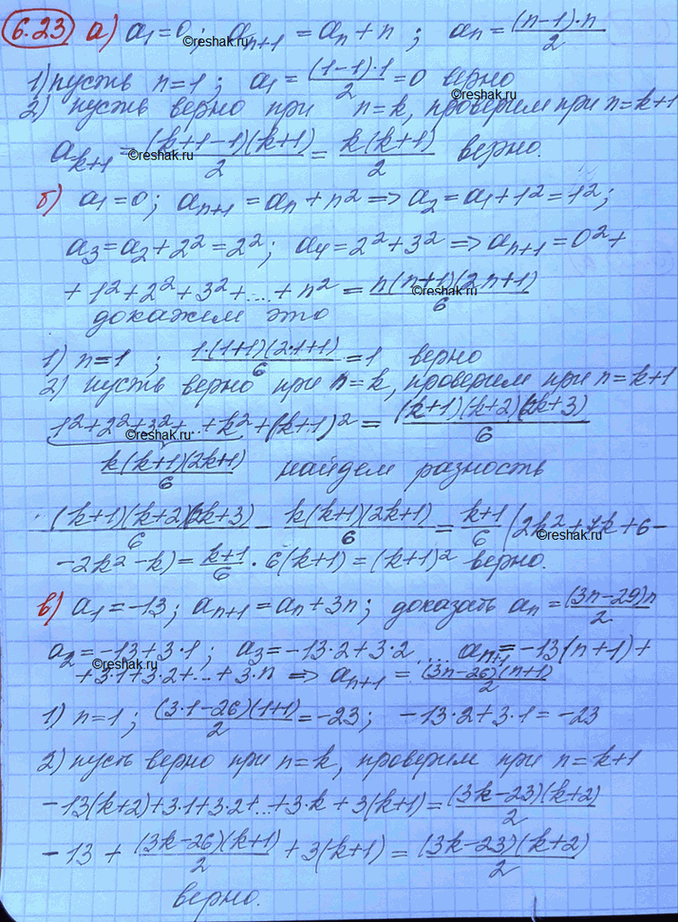 6.23 а) a₁=0; aₙ₊₁ = aₙ + n ; aₙ = (n-1)·n/2
1) пусть n=1 ; a₁ = (1-1)·1/2 = 0 верно
2) пусть верно при n=k, проверим при n=k+1
aₖ₊₁ = (k+1-1)(k+1)/2 = k(k+1)/2 верно.
б) a₁=0; aₙ₊₁ = aₙ + n² => a₂=a₁+1²=1²;
a₃=a₂+2²=2²; a₄=2²+3² => aₙ₊₁=0²+
+ 1²+2²+3²+....+n² = n(n+1)(2n+1)/6
докажем это
1) n=1 ; 1·(1+1)(2·1+1)/6 = 1 верно
2) пусть верно при n=k, проверим при n=k+1
1²+2²+3²+...+k²+(k+1)² = (k+1)(k+2)(2k+3)/6
k(k+1)(2k+1)/6 найдем разность
(k+1)(k+2)(2k+3)/6 - k(k+1)(2k+1)/6 = k+1/6 (2k²+7k+6-
-2k²-k) = k+1/6 · 6(k+1) = (k+1)² верно.
в) a₁=-13; aₙ₊₁=aₙ+3n; доказать aₙ=(3n-29)n/2
a₂=-13+3·1; a₃=-13·2+3·2 .... aₙ₊₁=-13(n+1)+
+3·1+3·2+...+3·n => aₙ₊₁ = (3n-26)(n+1)/2
1) n=1; (3·1-26)(1+1)/2 = -23; -13·2+3·1=-23
2) пусть верно при n=k, проверим при n=k+1
-13(k+2)+3·1+3·2+...+3·k+3(k+1)=(3k-23)(k+2)/2
-13 + (3k-26)(k+1)/2 + 3(k+1) = (3k-23)(k+2)/2
верно.
©reshak.ru
©reshak.ru
©reshak.ru
©reshak.ru
©reshak.ru
©reshak.ru
©reshak.ru